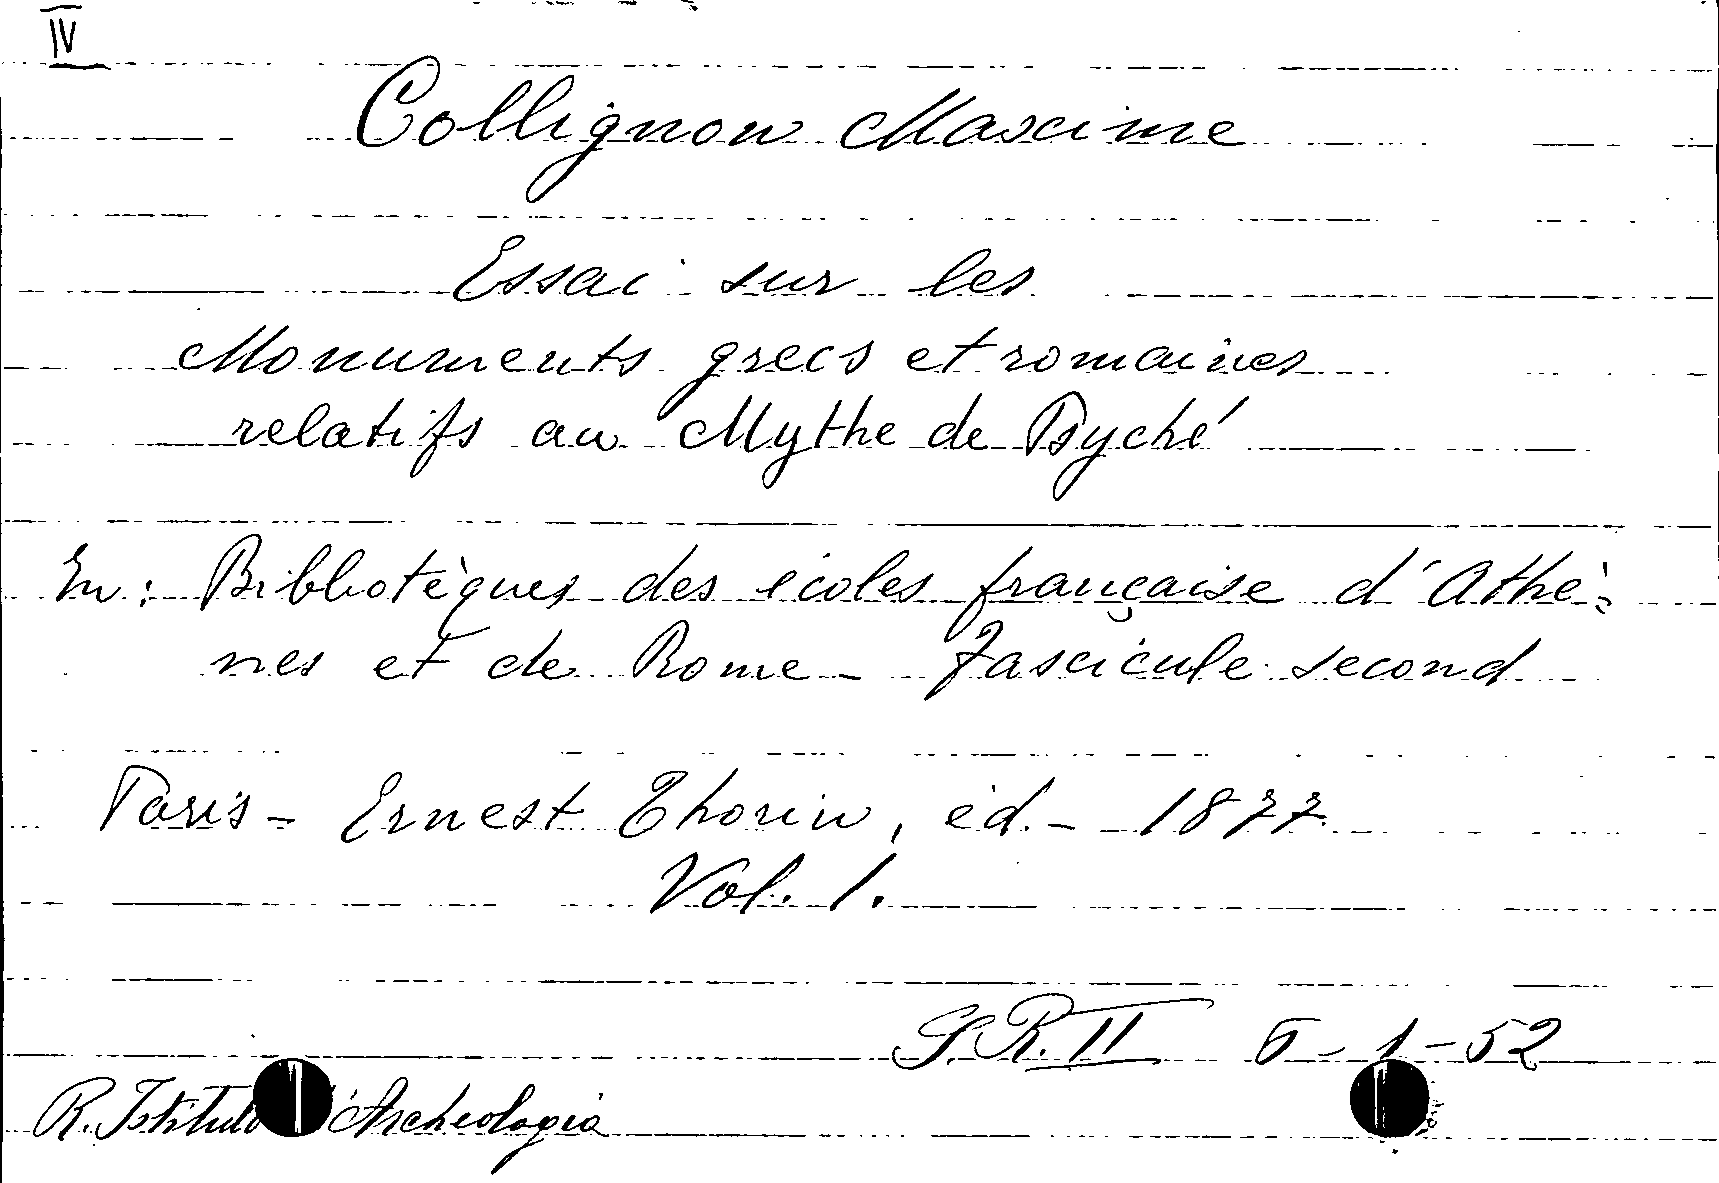 IV
Collignon Maxime
Essai sur les
Monuments grecs et romaines
relatifs au Mythe de Psyché
In: Bibliotèques des écoles française d'Athè=
nes et de Rome - Fascicule second
Paris - Ernest Thorin, éd. - 1877
Vol. 1.
S. R. II 6-1-52
R. Istituto d'Archeologia